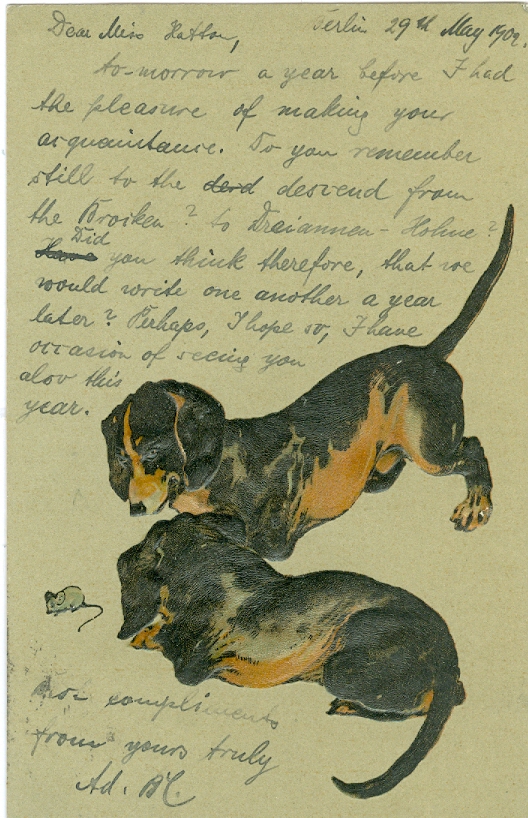 Dear Miss Hatton, Berlin 29th May 1902.
to-morrow a year before I had
the pleasure of making your
acquaintance. Do you remember
still to the derd descend from
the Brocken? to Dreiannen-Hohne?
Have Did you think therefore, that we
would write one another a year
later? Perhaps, I hope so, I have
occasion of seeing you
also this
year.
compliments
from yours truly
Ad.